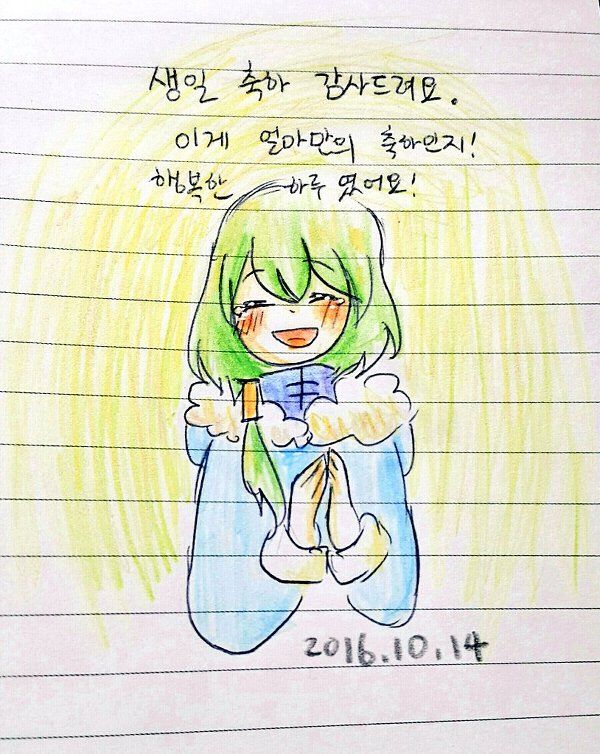 생일 축하 감사드려요.
이게 얼마만의 축하인지!
행복한 하루였어요!
2016.10.14